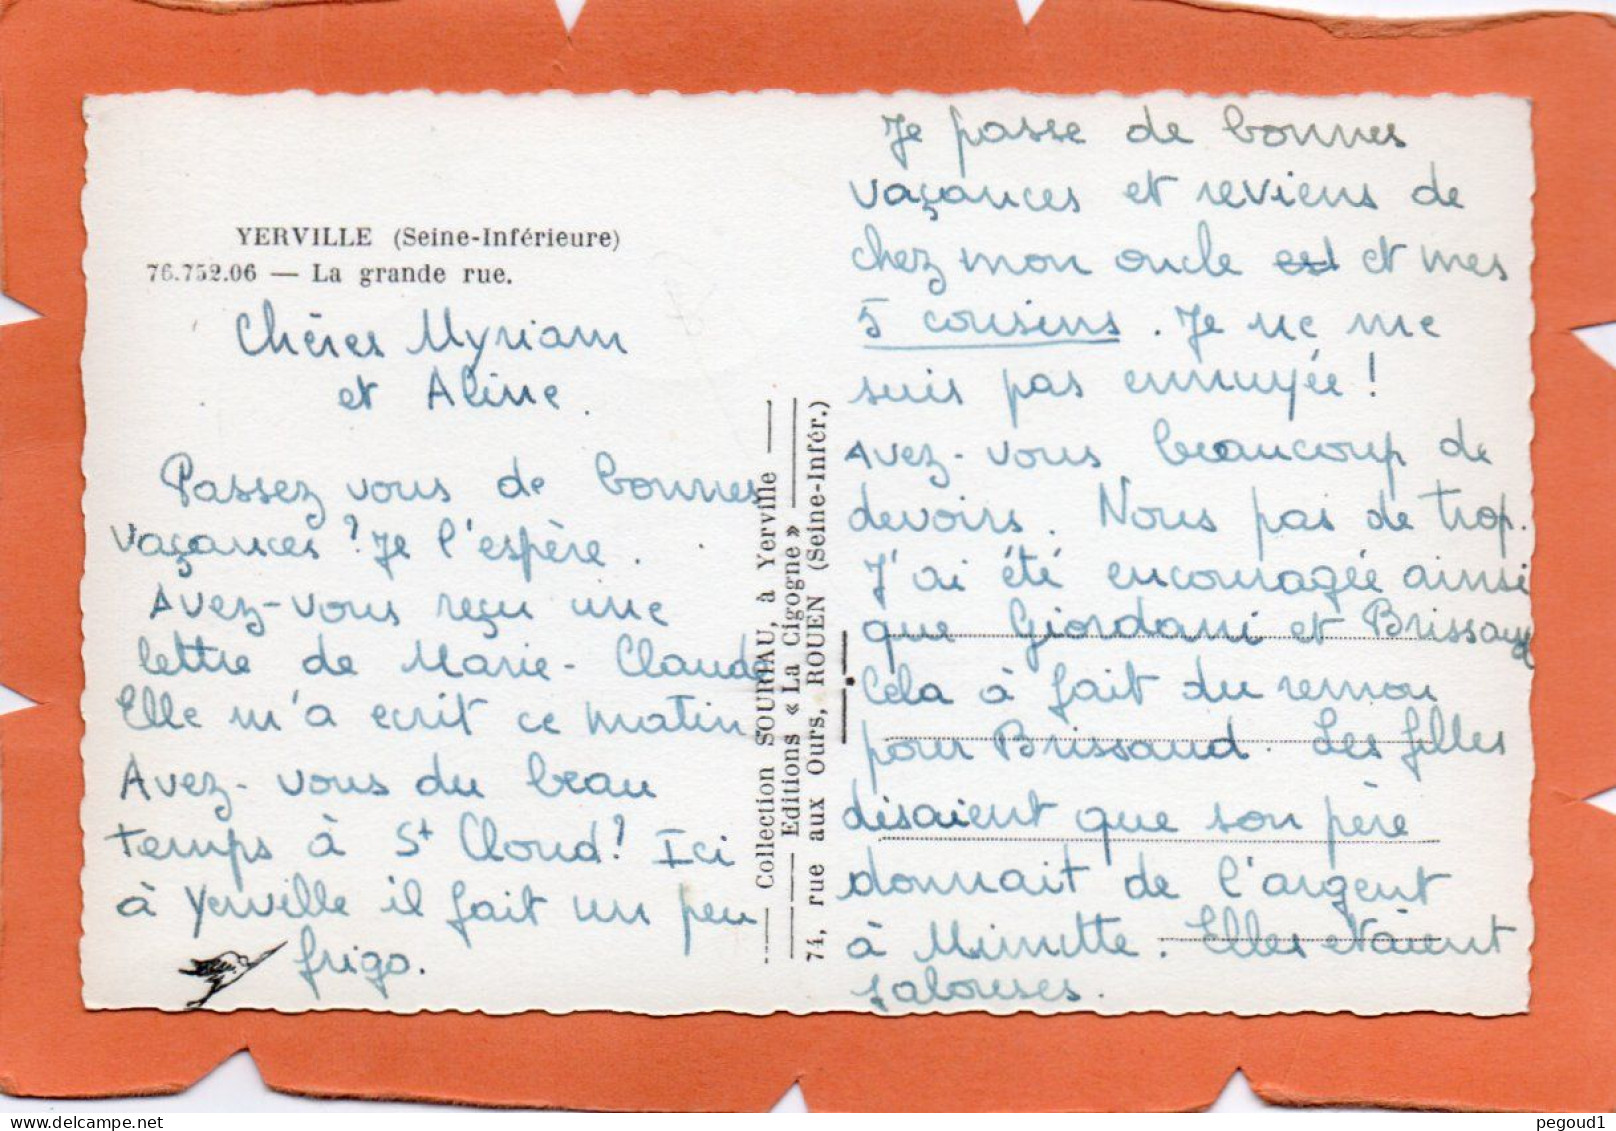 YERVILLE (Seine-Inférieure)
76.752.06 — La grande rue.
Chères Myriam
et Aline.
Passez vous de bonnes
vaçances? Je l'espère.
Avez-vous reçu une
lettre de Marie-Claude
Elle m'a ecrit ce matin.
Avez-vous du beau
temps à St Cloud! Ici
à Yerville il fait un peu
frigo.
Collection SOURIAU, à Yerville
Editions « La Cigogne »
74, rue aux Ours, ROUEN (Seine-Infér.)
Je passe de bonnes
vaçances et reviens de
chez mon oncle est et mes
5 cousins. Je ne me
suis pas ennuyée!
Avez-vous beaucoup de
devoirs. Nous pas de trop.
J'ai été encouragée ainsi
que Giordani et Brissaud
Cela à fait du remou
pour Brissaud. Les filles
disaient que son père
donnait de l'argent
à Minette. Elles étaient
jalouses.
pegoud1